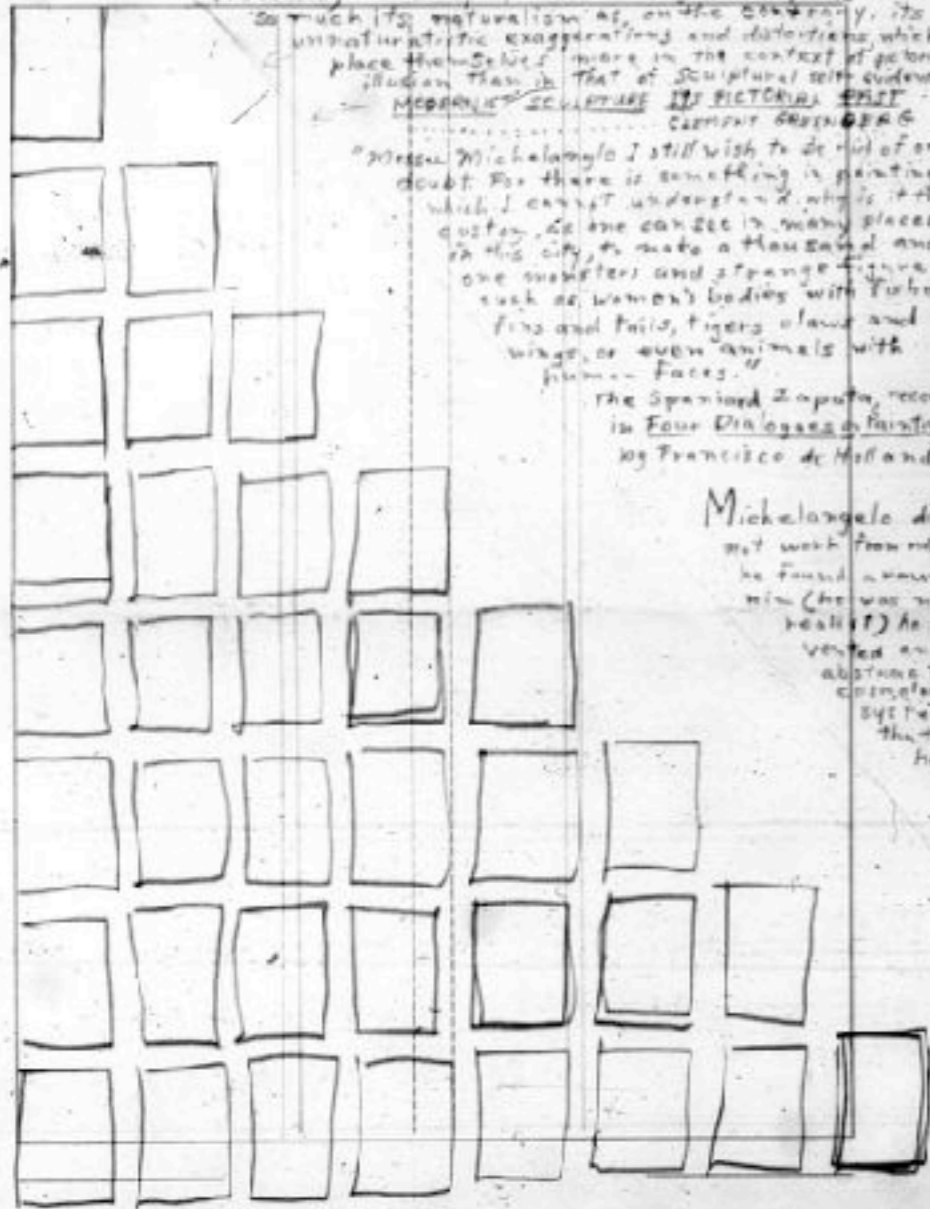 so much its naturalism as, on the contrary, its
unnaturalistic exaggerations and distortions, which
place themselves more in the context of pictor
illusion than in that of sculptural self-eviden
MODERNIST SCULPTURE ITS PICTORIAL PAST
CLEMENT GREENBERG
"Messer Michelangelo I still wish to be rid of on
doubt. For there is something in paintin
which I cannot understand. why is it th
custom, as one can see in many places
in this city, to make a thousand and
one monsters and strange figure
such as women's bodies with fishe
fins and tails, tigers claws and
wings, or even animals with
human faces."
The Spaniard Zapata, reco
in Four Dialogues Painti
by Francisco de Holland
Michelangelo di
not work from
he found aroun
him (he was n
realist) he
vented an
abstract
system
that
h